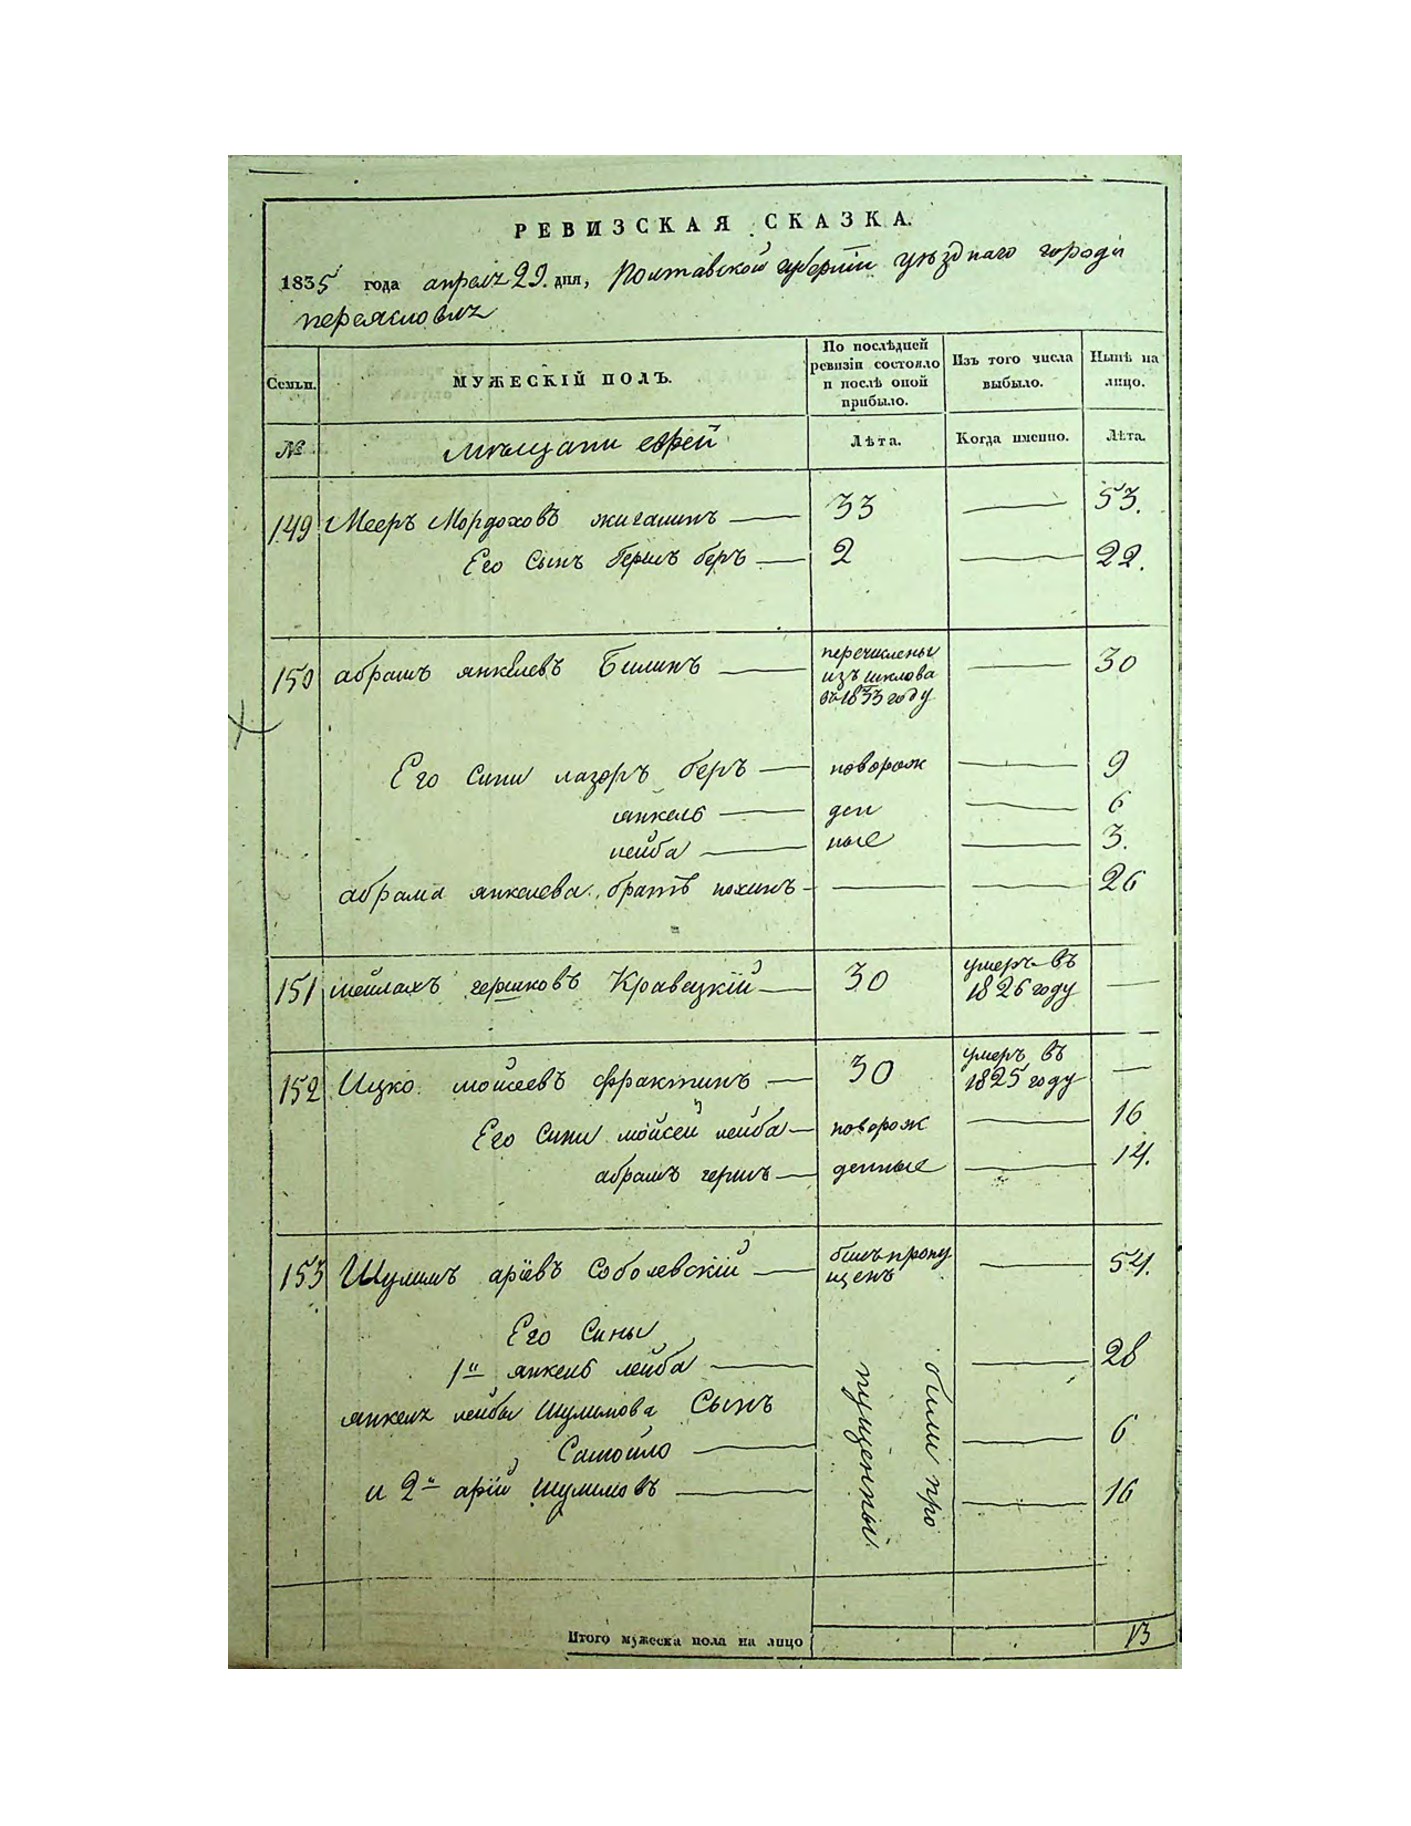 РЕВИЗСКАЯ СКАЗКА.
1835 года апреля 29. дня, Полтавской губернїи уѣзднаго города
переяславля
Семьи. МУЖЕСКІЙ ПОЛЪ. По послѣдней ревизіи состояло и послѣ оной прибыло. Изъ того числа выбыло. Нынѣ на лицо.
№ мѣщани еврей Лѣта. Когда именно. Лѣта.
149 Мееръ Мордоховъ 33 53.
Его Сынъ Гершъ беръ 2 22.
150 абрамъ янкелевъ Билинъ перечислены изъ шклова въ 1833 году 30
Его Сини лазоръ беръ поворож 9
янкель ден 6
лейба ные 3.
абрама янкелева братъ 26
151 шейлахъ гершковъ Кравецкій 30 умеръ въ 1826 году
152 Ицко моисеевъ фрактинъ 30 умеръ въ 1825 году
Его Сини мойсей лейба поворож 16
абрамъ гершъ денные 14.
153 Шулимъ арїевъ Соболевскій билъ пропу щенъ 54.
Его Сины
1й янкель лейба били про пущенны 28
янкеля лейбы Шулимова Сынъ
Самойло 6
и 2й арїй Шулимовъ 16
Итого мужеска пола на лицо 13